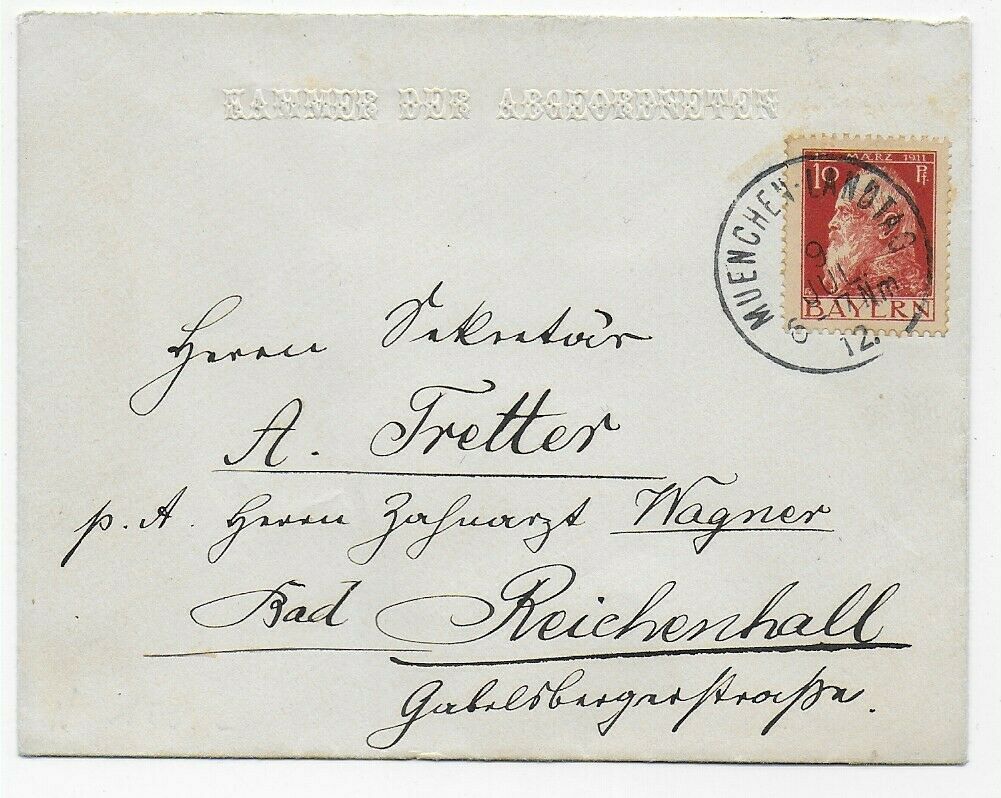 KAMMER DER ABGEORDNETEN
12. MÄRZ 1911
10 Pf.
BAYERN
MUENCHEN-LANDTAG
9 JUL
6-7 Nm
12.
Herrn Sekretär
A. Tretter
p. A. Herrn Zahnarzt Wagner
Bad Reichenhall
Gabelsbergerstraße.